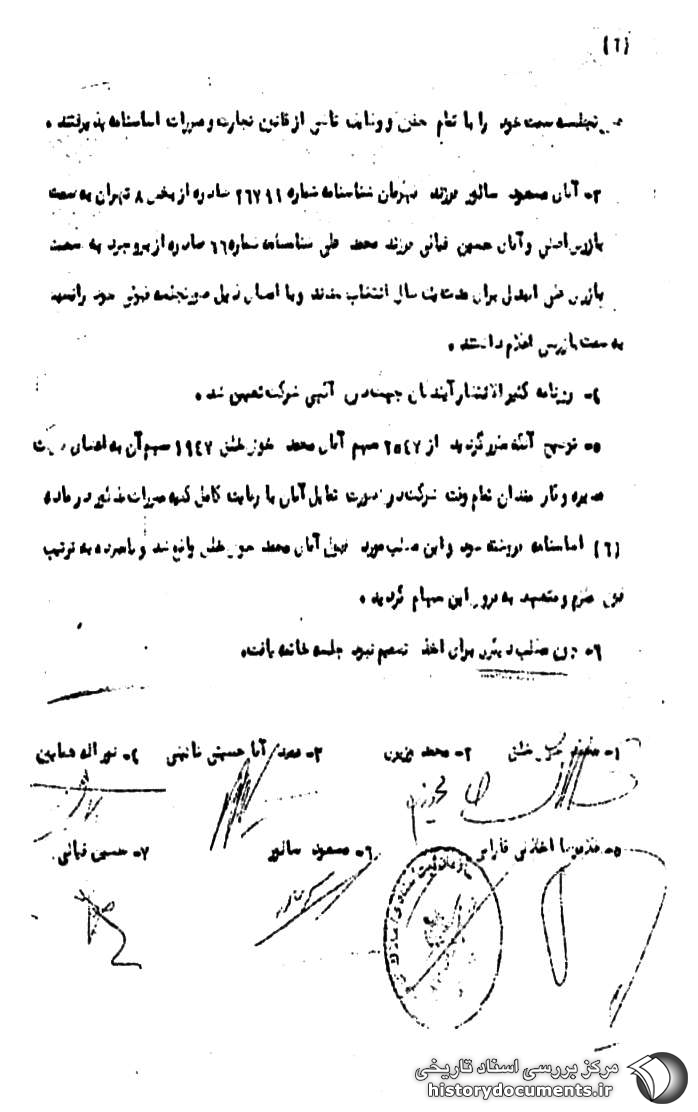 (٦)
را با تمام حقوق و وظایف ناشی از قانون تجارت و مقررات اساسنامه پذیرفتند .
٣- آقای مسعود سالور فرزند قهرمان شناسنامه شماره ٢٦٧٩١ صادره از بخش ٨ تهران به سمت
بازرس اصلی و آقای حسین قبائی فرزند محمد علی شناسنامه شماره ٦٦ صادره از بروجرد به سمت
بازرس علی البدل برای مدت یک سال انتخاب شدند و با امضای ذیل صورتجلسه قبولی خود را نسبت
به سمت بازرس اعلام داشتند .
٤- روزنامه کثیرالانتشار آیندگان جهت درج آگهی شرکت تعیین شد .
٥- توضیح آنکه مقرر گردید از ٢٥٤٧ سهم آقای محمد ١٩٤٧ سهم آن به اعضای هیئت
مدیره و کارمندان تمام وقت شرکت در صورت تمایل آنان با رعایت کامل کلیه مقررات مذکور در ماده
(٦) اساسنامه فروخته شود و این مطلب مورد قبول آقای محمد واقع شد و نامبرده به ترتیب
فوق ملزم و متعهد به فروش این سهام گردید .
٦- چون مطلب دیگری برای اخذ تصمیم نبود جلسه خاتمه یافت.
١- محمد ٢- محمد ٣- محمد آقا حسینی نائینی ٤- نوراله همایون
٥- اخلاقی ٦- مسعود سالور ٧- حسین قبائی
مرکز بررسی اسناد تاریخی
historydocuments.ir